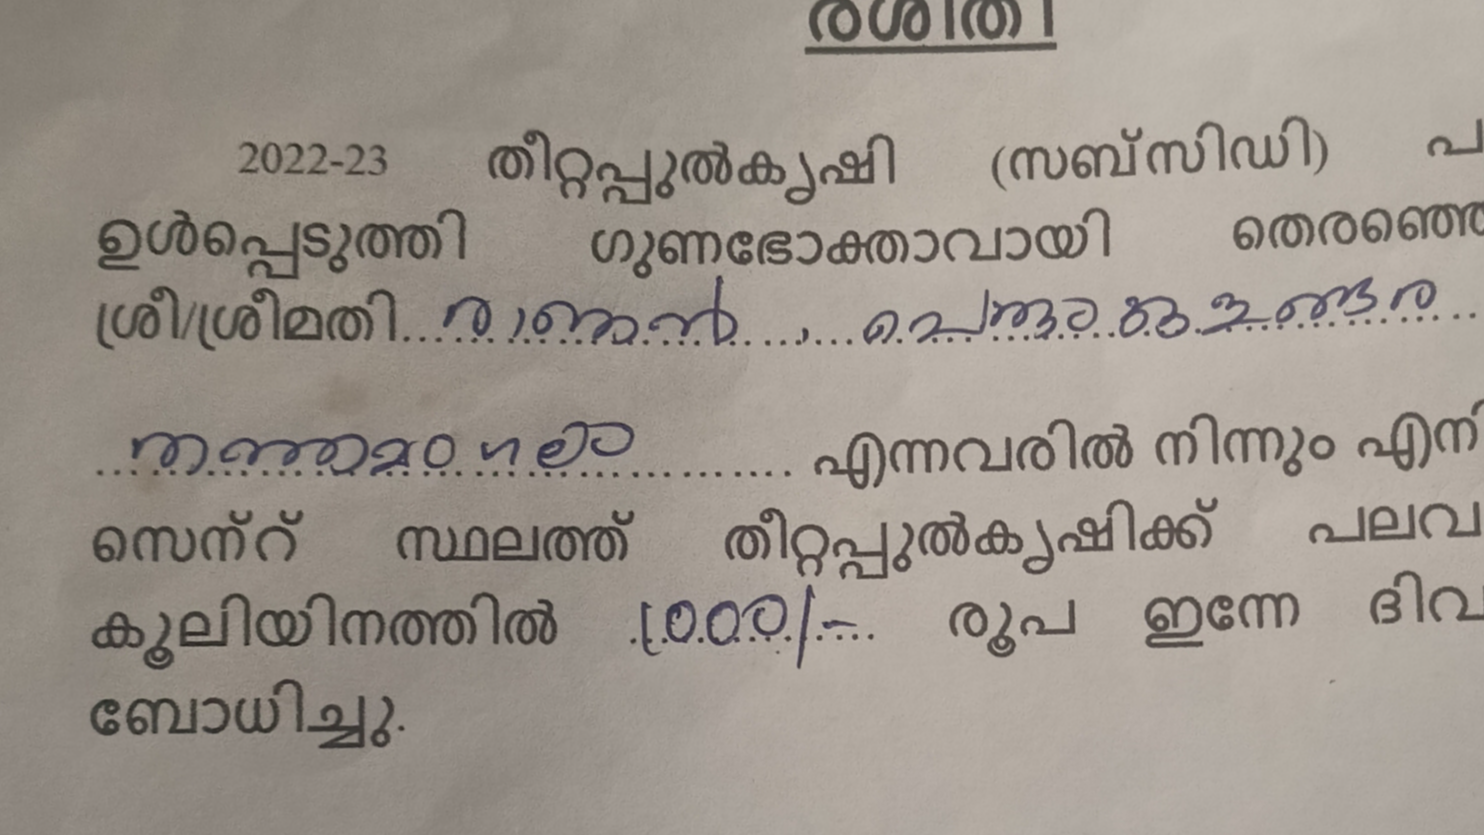 രശീതി
2022-23 തീറ്റപ്പുൽകൃഷി (സബ്സിഡി) പ
ഉൾപ്പെടുത്തി ഗുണഭോക്താവായി തെരഞ്ഞെ
ശ്രീ/ശ്രീമതി
എന്നവരിൽ നിന്നും എന്
സെന്റ് സ്ഥലത്ത് തീറ്റപ്പുൽകൃഷിക്ക് പലവ
കൂലിയിനത്തിൽ 1000/- രൂപ ഇന്നേ ദിവ
ബോധിച്ചു.